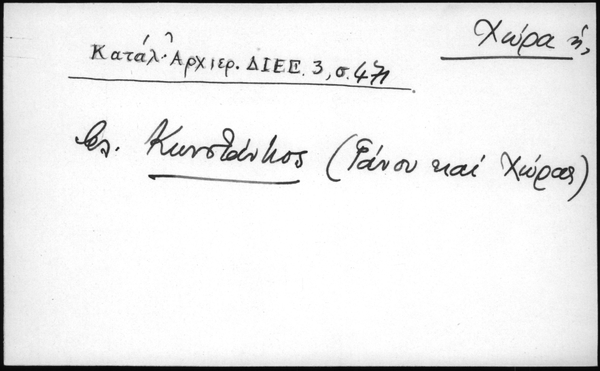 Χώρα ἡ,
Κατάλ. Ἀρχιερ. ΔΙΕΕ. 3, σ. 471
Ἐπ. Κωνστάντιος (Γάνου καί Χώρας)